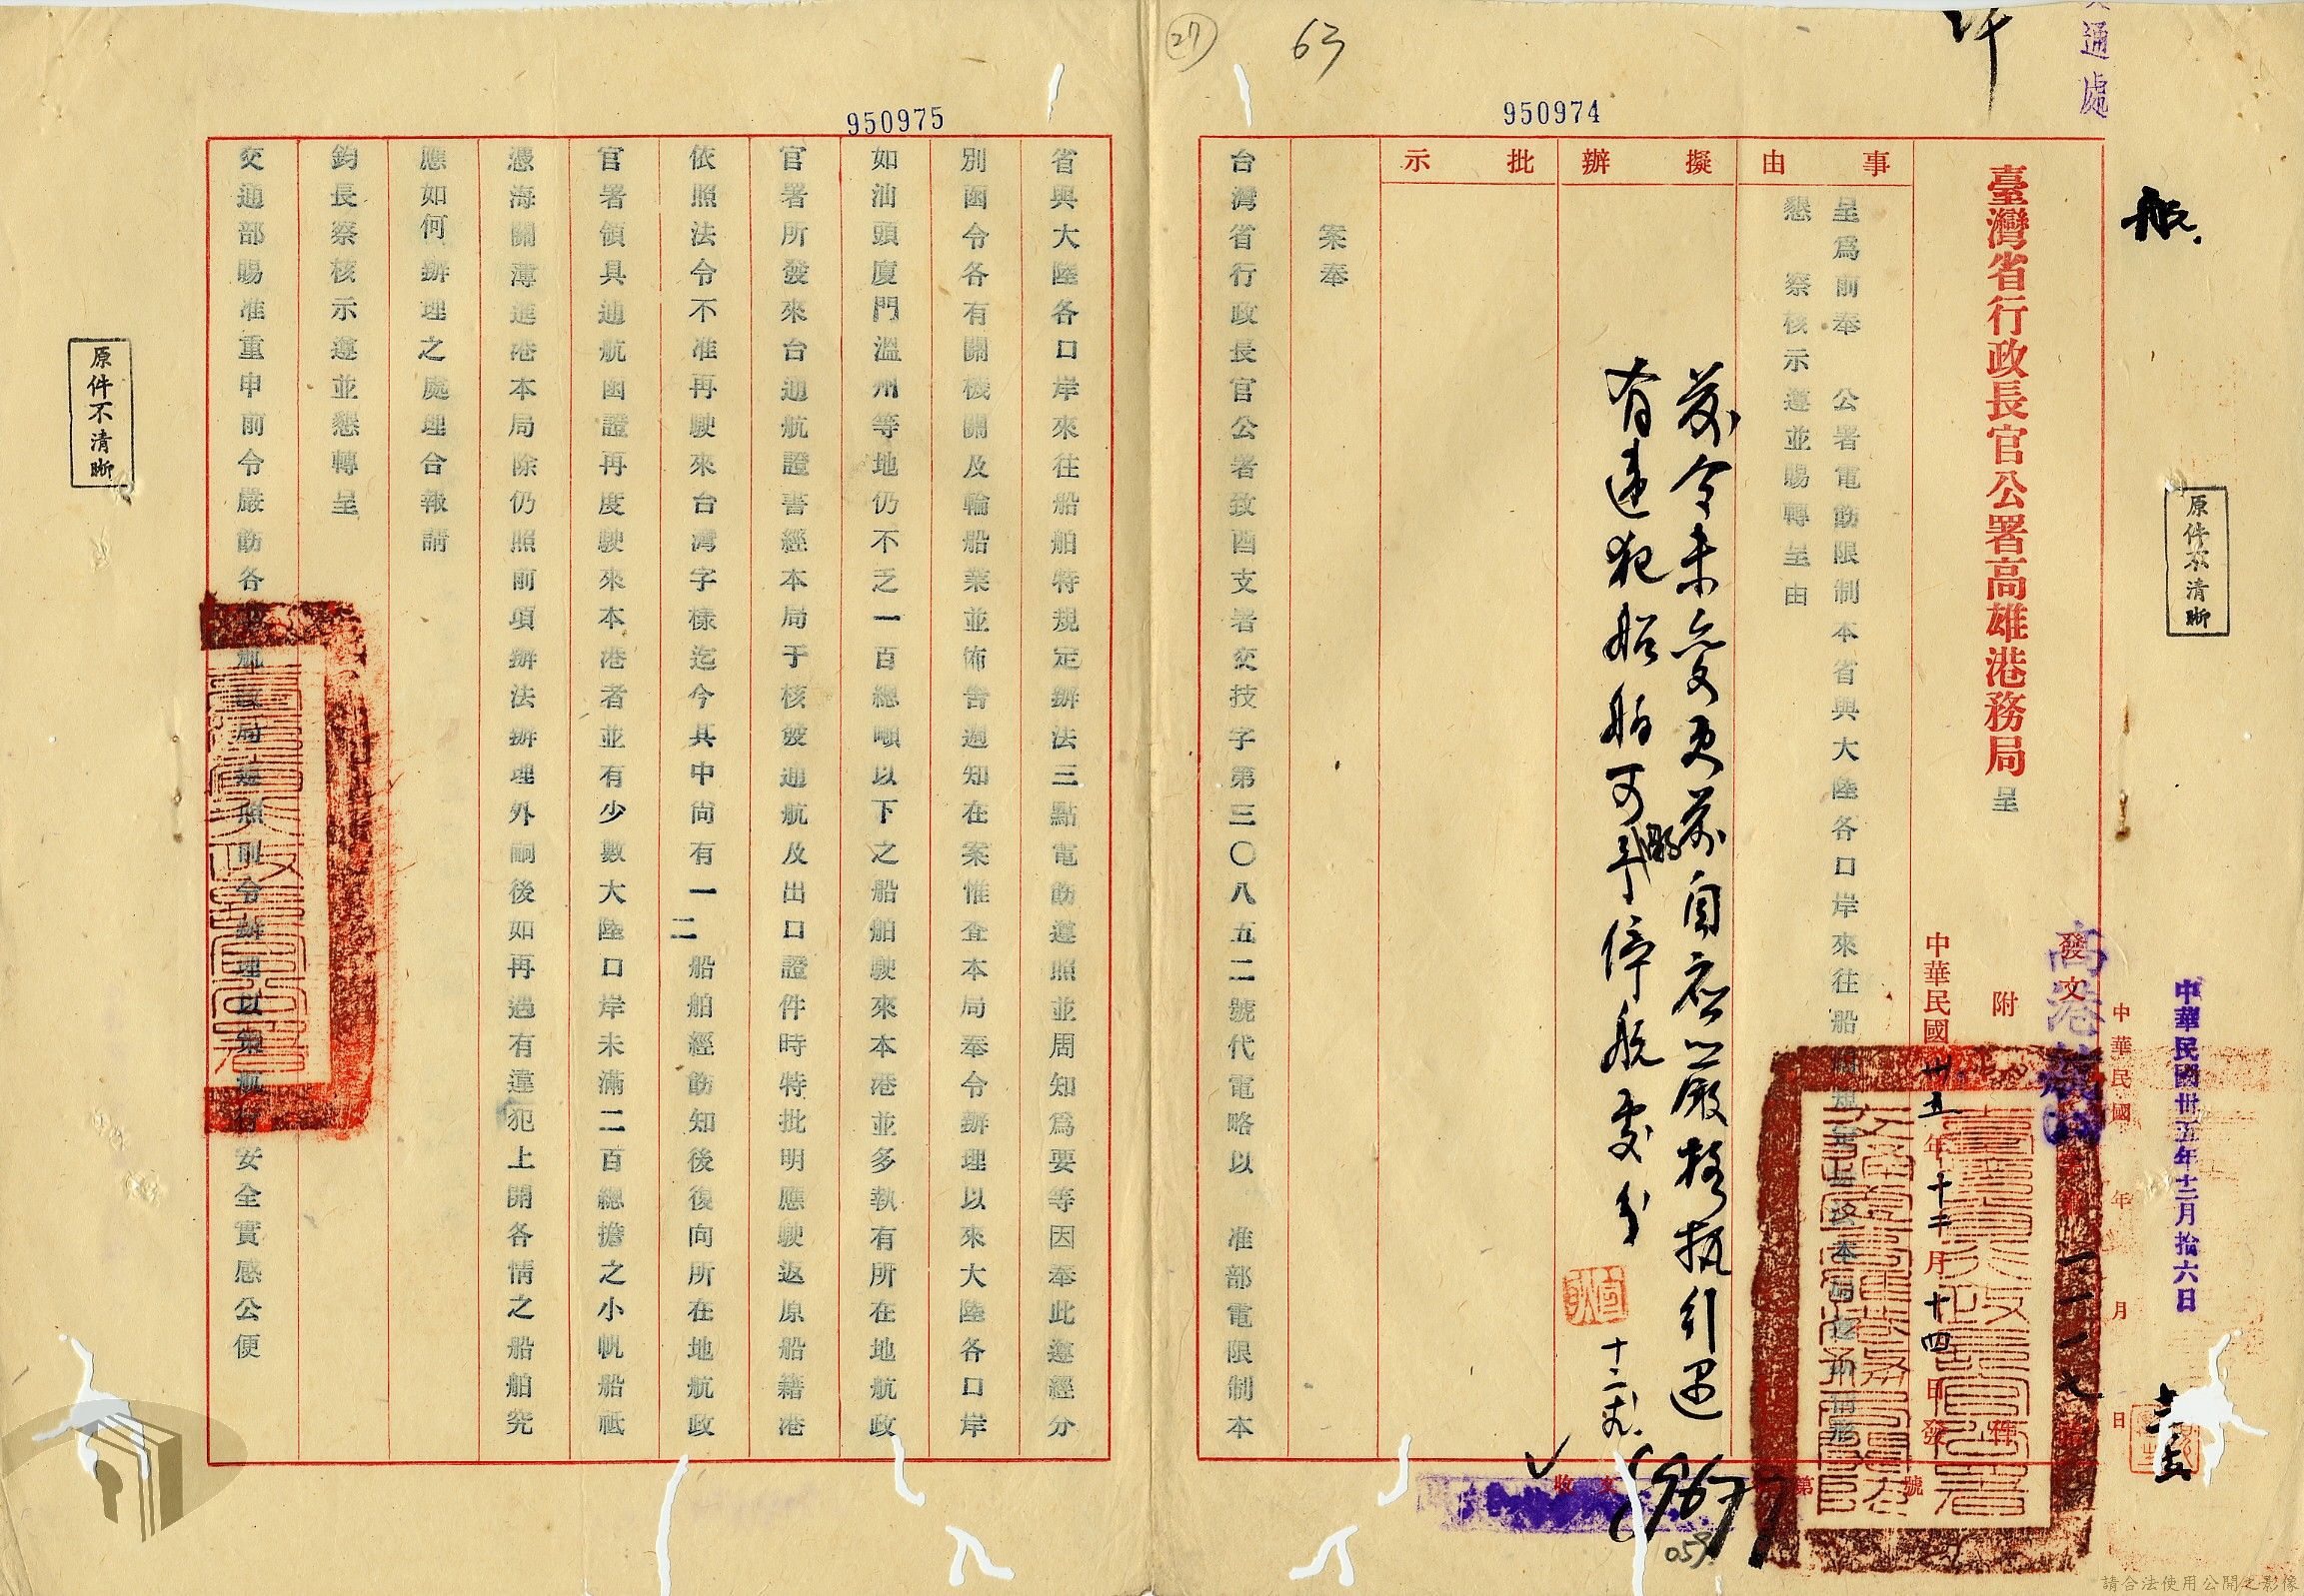 交通處
中華民國卅五年十二月拾六日
原件不清晰
中華民國 年 月 日
發文
臺灣省行政長官公署高雄港務局 呈
附件
中華民國卅五年十二月十四日發
事由
呈為前奉 公署電飭限制本省與大陸各口岸來往船
懇 察核示遵並賜轉呈由
擬辦
前令未變更前自應以嚴格執行遇
有違犯船舶可予停航處分
批示
案奉
台灣省行政長官公署致酉支署交技字第三〇八五二號代電略以 准部電限制本
收文 第 號
950974
63
27
059
950975
省與大陸各口岸來往船舶特規定辦法三點電飭遵照並周知為要等因奉此遵經分
別函令各有關機關及輪船業並佈告週知在案惟查本局奉令辦理以來大陸各口岸
如汕頭廈門溫州等地仍不乏一百總噸以下之船舶駛來本港並多執有所在地航政
官署所發來台通航證書經本局于核發通航及出口證件時特批明應駛返原船籍港
依照法令不准再駛來台灣字樣迄今其中尚有一二船舶經飭知後復向所在地航政
官署領具通航函證再度駛來本港者並有少數大陸口岸未滿二百總擔之小帆船祗
憑海關薄進港本局除仍照前項辦法辦理外嗣後如再過有違犯上開各情之船舶究
應如何辦理之處理合報請
鈞長察核示遵並懇轉呈
交通部賜准重申前令嚴飭各航政局遵照前令辦理以策航行安全實感公便
原件不清晰
請合法使用公開之影像